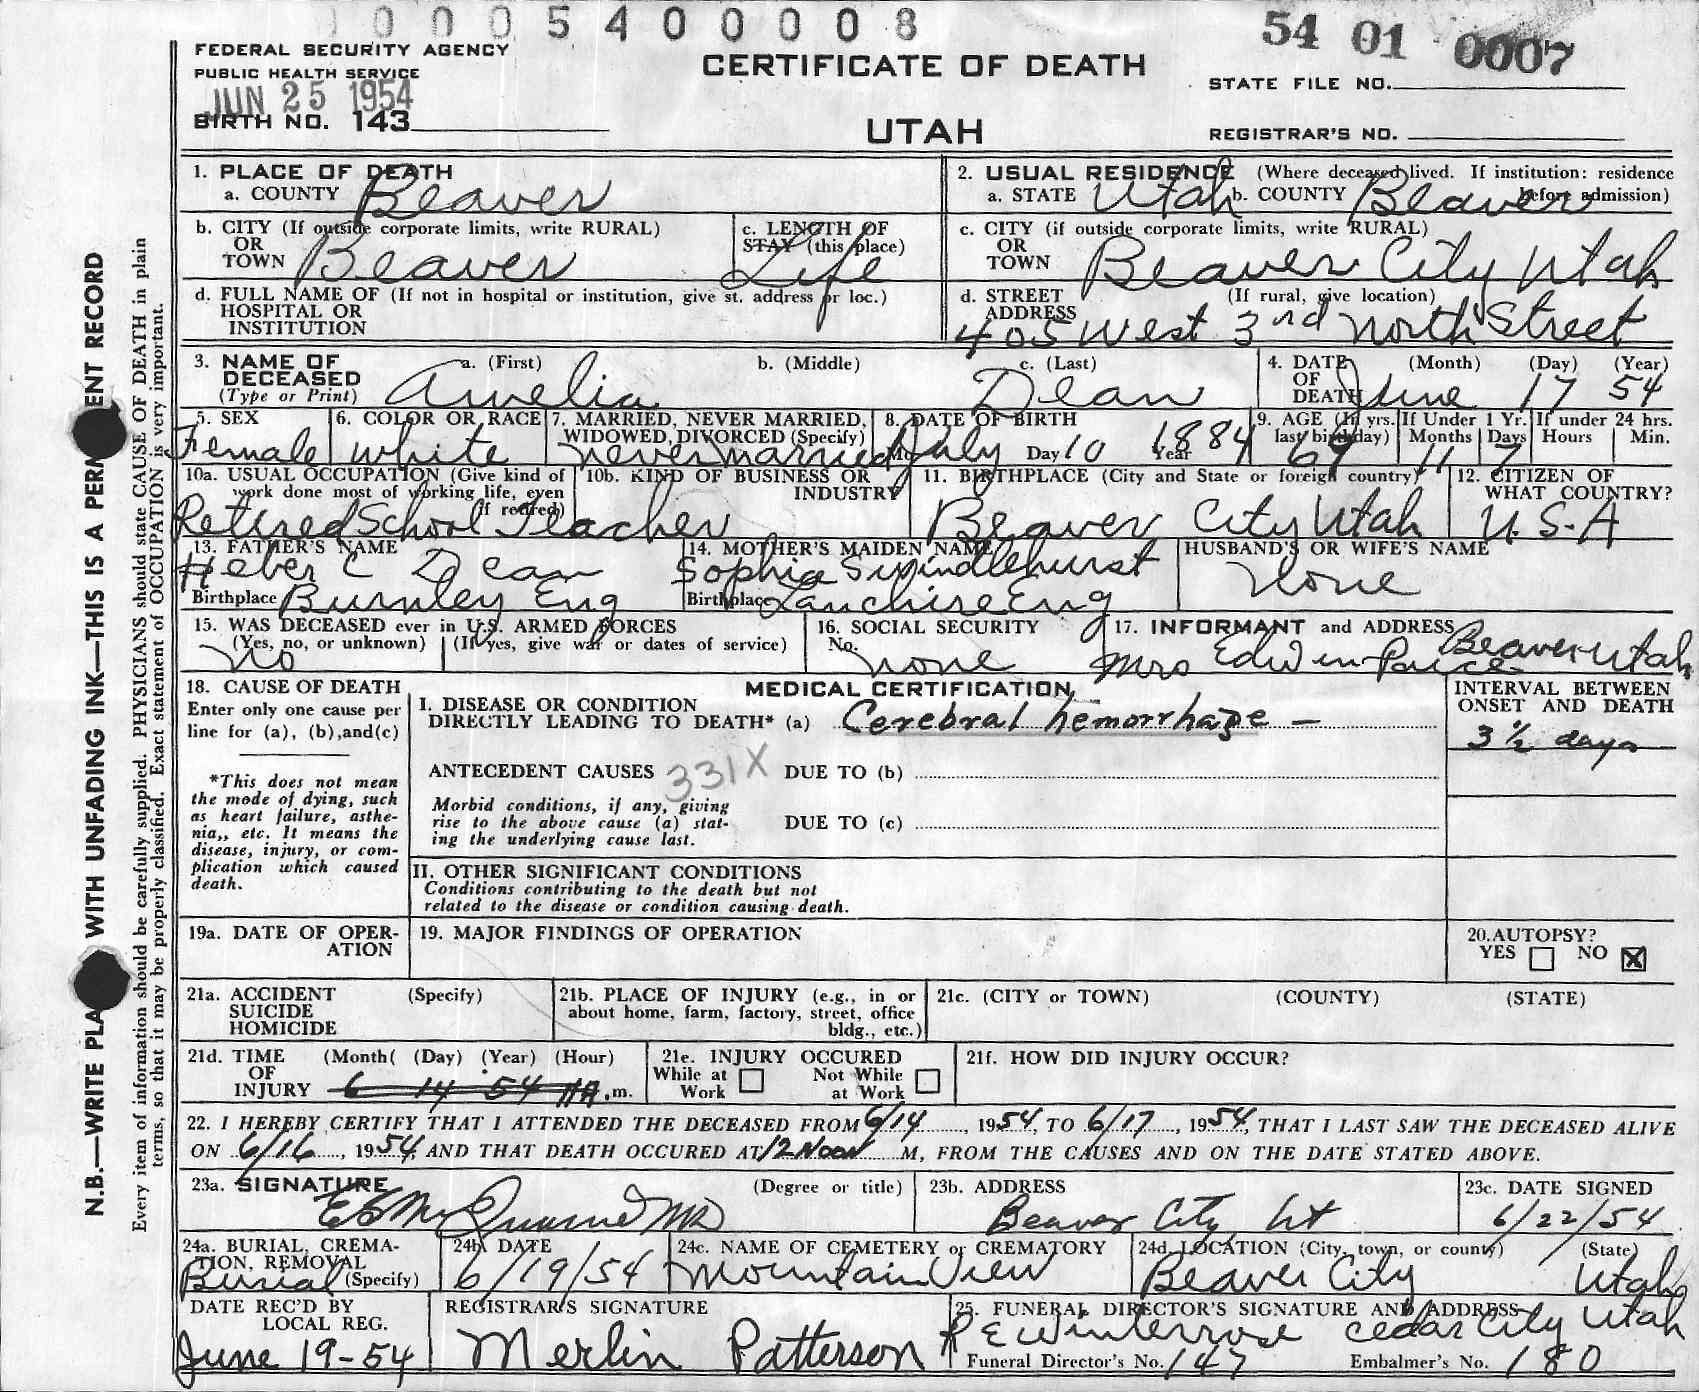 0 0 0 5 4 0 0 0 0 8
54 01 0007
FEDERAL SECURITY AGENCY
PUBLIC HEALTH SERVICE
JUN 25 1954
BIRTH NO. 143
CERTIFICATE OF DEATH
UTAH
STATE FILE NO.
REGISTRAR'S NO.
N.B.—WRITE PLA WITH UNFADING INK—THIS IS A PERM ENT RECORD
Every item of information should be carefully supplied. PHYSICIANS should state CAUSE OF DEATH in plain
terms, so that it may be properly classified. Exact statement of OCCUPATION is very important.
1. PLACE OF DEATH
a. COUNTY Beaver
2. USUAL RESIDENCE (Where deceased lived. If institution: residence before admission)
a. STATE Utah b. COUNTY Beaver
b. CITY (If outside corporate limits, write RURAL)
OR
TOWN Beaver
c. LENGTH OF
STAY (this place)
Life
c. CITY (if outside corporate limits, write RURAL)
OR
TOWN Beaver City Utah
d. FULL NAME OF (If not in hospital or institution, give st. address or loc.)
HOSPITAL OR
INSTITUTION
d. STREET (If rural, give location)
ADDRESS
405 West 3rd North Street
3. NAME OF
DECEASED
(Type or Print)
a. (First) b. (Middle) c. (Last)
Amelia Dean
4. DATE (Month) (Day) (Year)
OF
DEATH June 17 54
5. SEX
Female
6. COLOR OR RACE
White
7. MARRIED, NEVER MARRIED,
WIDOWED, DIVORCED (Specify)
never married
8. DATE OF BIRTH
Mo. July Day 10 Year 1884
9. AGE (In yrs. last birthday)
69
If Under 1 Yr.
Months Days
11 7
If under 24 hrs.
Hours Min.
10a. USUAL OCCUPATION (Give kind of
work done most of working life, even
if retired)
Retired School Teacher
10b. KIND OF BUSINESS OR
INDUSTRY
11. BIRTHPLACE (City and State or foreign country)
Beaver City Utah
12. CITIZEN OF
WHAT COUNTRY?
U.S.A
13. FATHER'S NAME
Heber C Dean
Birthplace Burnley Eng
14. MOTHER'S MAIDEN NAME
Sophia Swindlehurst
Birthplace Lanchire Eng
HUSBAND'S OR WIFE'S NAME
None
15. WAS DECEASED ever in U.S. ARMED FORCES
(Yes, no, or unknown) (If yes, give war or dates of service)
No
16. SOCIAL SECURITY
No.
none
17. INFORMANT and ADDRESS
Beaver-Utah
Mrs Edwin
18. CAUSE OF DEATH
Enter only one cause per
line for (a), (b),and(c)
*This does not mean
the mode of dying, such
as heart failure, asthe-
nia,, etc. It means the
disease, injury, or com-
plication which caused
death.
MEDICAL CERTIFICATION
I. DISEASE OR CONDITION
DIRECTLY LEADING TO DEATH* (a) Cerebral hemorrhage –
ANTECEDENT CAUSES 331X DUE TO (b)
Morbid conditions, if any, giving
rise to the above cause (a) stat-
ing the underlying cause last.
DUE TO (c)
II. OTHER SIGNIFICANT CONDITIONS
Conditions contributing to the death but not
related to the disease or condition causing death.
INTERVAL BETWEEN
ONSET AND DEATH
3 ½ days
19a. DATE OF OPER-
ATION
19. MAJOR FINDINGS OF OPERATION
20. AUTOPSY?
YES NO X
21a. ACCIDENT (Specify)
SUICIDE
HOMICIDE
21b. PLACE OF INJURY (e.g., in or
about home, farm, factory, street, office
bldg., etc.)
21c. (CITY or TOWN) (COUNTY) (STATE)
21d. TIME (Month( (Day) (Year) (Hour)
OF
INJURY 6 14 54 .m.
21e. INJURY OCCURED
While at Work
Not While at Work
21f. HOW DID INJURY OCCUR?
22. I HEREBY CERTIFY THAT I ATTENDED THE DECEASED FROM 6/14, 1954, TO 6/17, 1954, THAT I LAST SAW THE DECEASED ALIVE
ON 6/16, 1954, AND THAT DEATH OCCURED AT 12 Noon M, FROM THE CAUSES AND ON THE DATE STATED ABOVE.
23a. SIGNATURE (Degree or title)
MD
23b. ADDRESS
Beaver City Ut
23c. DATE SIGNED
6/22/54
24a. BURIAL, CREMA-
TION, REMOVAL
Burial (Specify)
24b. DATE
6/19/54
24c. NAME OF CEMETERY or CREMATORY
Mountain View
24d. LOCATION (City, town, or county) (State)
Beaver City Utah
DATE REC'D BY
LOCAL REG.
June 19-54
REGISTRAR'S SIGNATURE
Merlin Patterson
25. FUNERAL DIRECTOR'S SIGNATURE AND ADDRESS
R E Winterrose Cedar City Utah
Funeral Director's No. 147 Embalmer's No. 180